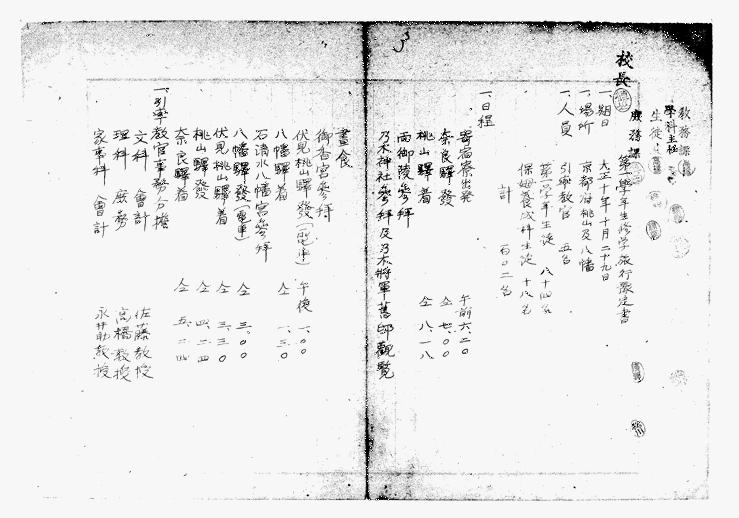 校長
教務課
學科主任
生徒
庶務課
第一學年生修学旅行豫定書
一、期日　大正十年十月二十九日
一、場所　京都府桃山及八幡
一、人員　引率教官　五名
第一学年生徒　八十四名
保姆養成科生徒　十八名
計　百〇二名
一、日程
寄宿寮出発　午前六.二〇
奈良驛發　仝七.〇〇
桃山驛着　仝八.一八
両御陵参拜
乃木神社参拜及乃木將軍舊邸觀覧
晝食
御香宮参拜
伏見桃山驛發（電車）　午後一.〇〇
八幡驛着　仝一.三〇
石清水八幡宮参拜
八幡驛發（電車）　仝三.〇〇
伏見桃山驛着　仝三.三〇
桃山驛發　仝四.二四
奈良驛着　仝五.二四
一、引率教官事務分擔
文科　會計　佐藤教授
理科　庶務　高橋教授
家事科　會計　永井助教授